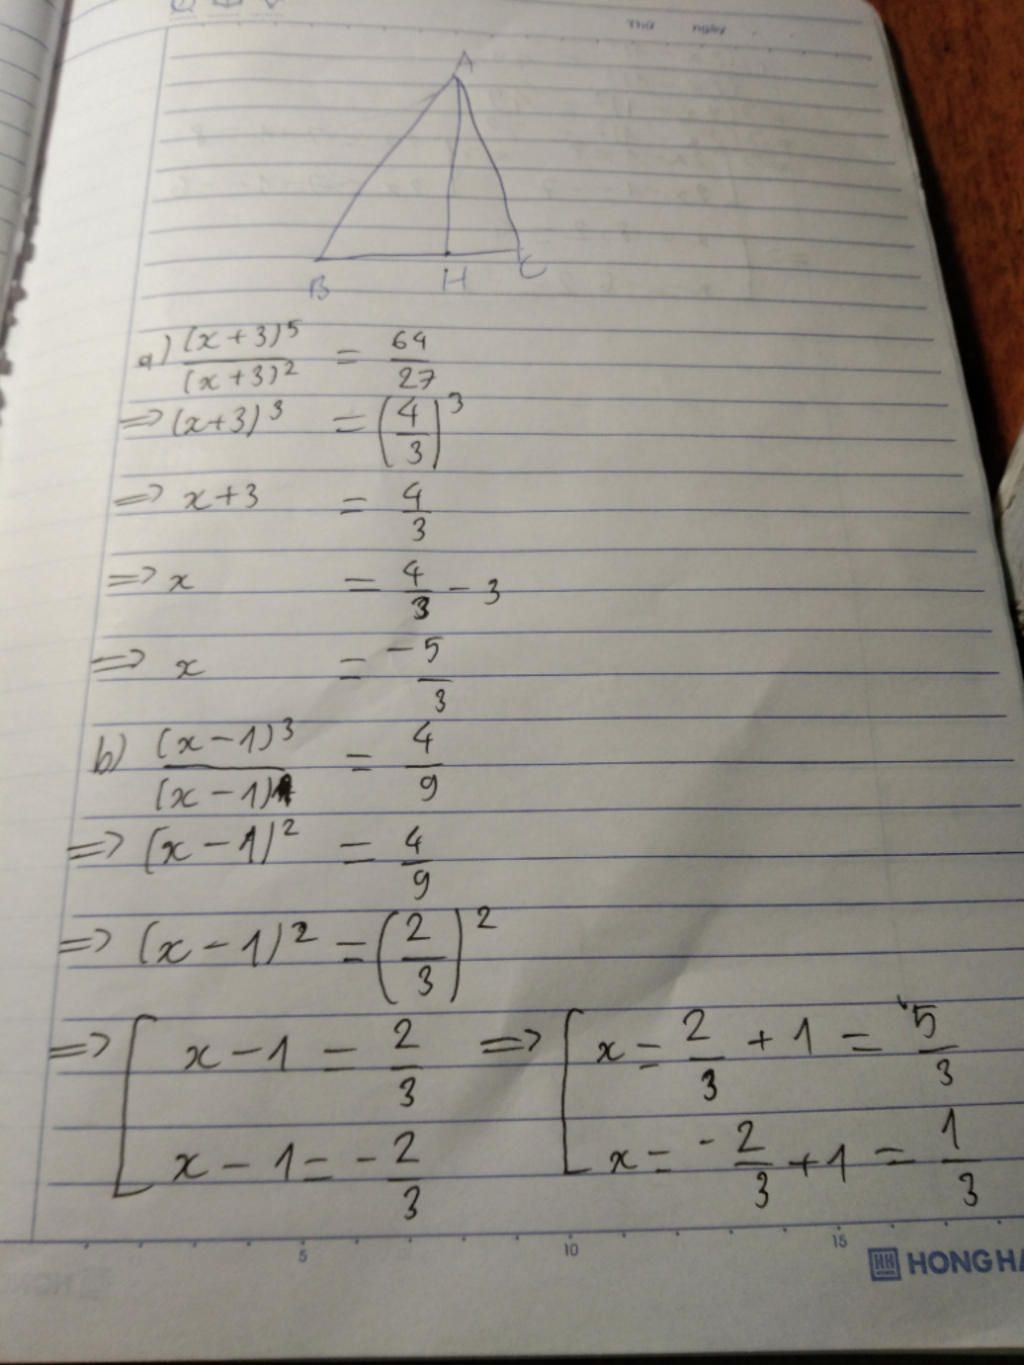 Thứ ngày
A
B H C
a) (x+3)^5/(x+3)^2 = 64/27
=> (x+3)^3 = (4/3)^3
=> x+3 = 4/3
=> x = 4/3 - 3
=> x = -5/3
b) (x-1)^3/(x-1) = 4/9
=> (x-1)^2 = 4/9
=> (x-1)^2 = (2/3)^2
=> [ x-1 = 2/3 => [ x = 2/3 + 1 = 5/3
x-1 = -2/3 x = -2/3 + 1 = 1/3
5 10 15
HONG HA